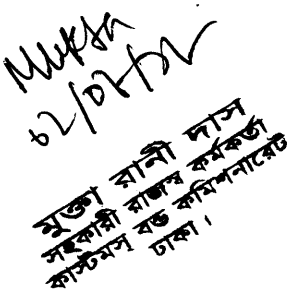 Mukta
02/02/12
মুক্তা রানী দাস
সহকারী রাজস্ব কর্মকর্তা
কাস্টমস্ বন্ড কমিশনারেট
ঢাকা।